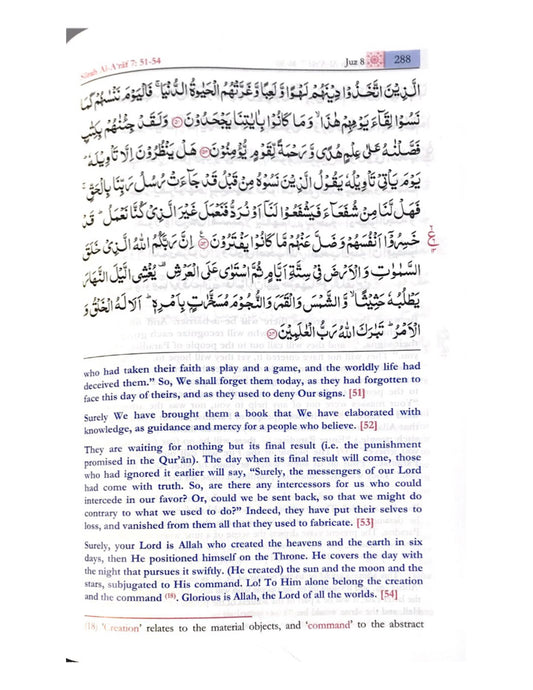 Sūrah Al-A‘rāf 7: 51-54
Juz 8
288
الَّذِيْنَ اتَّخَذُوْا دِيْنَهُمْ لَهْوًا وَّ لَعِبًا وَّ غَرَّتْهُمُ الْحَيٰوةُ الدُّنْيَا ۚ فَالْيَوْمَ نَنْسٰىهُمْ كَمَا
نَسُوْا لِقَآءَ يَوْمِهِمْ هٰذَا ۙ وَ مَا كَانُوْا بِاٰيٰتِنَا يَجْحَدُوْنَ ﴿۵۱﴾ وَ لَقَدْ جِئْنٰهُمْ بِكِتٰبٍ
فَصَّلْنٰهُ عَلٰى عِلْمٍ هُدًى وَّ رَحْمَةً لِّقَوْمٍ يُّؤْمِنُوْنَ ﴿۵۲﴾ هَلْ يَنْظُرُوْنَ اِلَّا تَاْوِيْلَهٗ ؕ
يَوْمَ يَاْتِيْ تَاْوِيْلُهٗ يَقُوْلُ الَّذِيْنَ نَسُوْهُ مِنْ قَبْلُ قَدْ جَآءَتْ رُسُلُ رَبِّنَا بِالْحَقِّ ۚ
فَهَلْ لَّنَا مِنْ شُفَعَآءَ فَيَشْفَعُوْا لَنَاۤ اَوْ نُرَدُّ فَنَعْمَلَ غَيْرَ الَّذِيْ كُنَّا نَعْمَلُ ؕ قَدْ
خَسِرُوْۤا اَنْفُسَهُمْ وَ ضَلَّ عَنْهُمْ مَّا كَانُوْا يَفْتَرُوْنَ ﴿۵۳﴾ اِنَّ رَبَّكُمُ اللّٰهُ الَّذِيْ خَلَقَ
السَّمٰوٰتِ وَ الْاَرْضَ فِيْ سِتَّةِ اَيَّامٍ ثُمَّ اسْتَوٰى عَلَى الْعَرْشِ ۟ يُغْشِي الَّيْلَ النَّهَارَ
يَطْلُبُهٗ حَثِيْثًا ۙ وَّ الشَّمْسَ وَ الْقَمَرَ وَ النُّجُوْمَ مُسَخَّرٰتٍۭ بِاَمْرِهٖ ؕ اَلَا لَهُ الْخَلْقُ وَ
الْاَمْرُ ؕ تَبٰرَكَ اللّٰهُ رَبُّ الْعٰلَمِيْنَ ﴿۵۴﴾
who had taken their faith as play and a game, and the worldly life had
deceived them.” So, We shall forget them today, as they had forgotten to
face this day of theirs, and as they used to deny Our signs. [51]
Surely We have brought them a book that We have elaborated with
knowledge, as guidance and mercy for a people who believe. [52]
They are waiting for nothing but its final result (i.e. the punishment
promised in the Qur’ān). The day when its final result will come, those
who had ignored it earlier will say, “Surely, the messengers of our Lord
had come with truth. So, are there any intercessors for us who could
intercede in our favor? Or, could we be sent back, so that we might do
contrary to what we used to do?” Indeed, they have put their selves to
loss, and vanished from them all that they used to fabricate. [53]
Surely, your Lord is Allah who created the heavens and the earth in six
days, then He positioned himself on the Throne. He covers the day with
the night that pursues it swiftly. (He created) the sun and the moon and the
stars, subjugated to His command. Lo! To Him alone belong the creation
and the command (18). Glorious is Allah, the Lord of all the worlds. [54]
(18) ‘Creation’ relates to the material objects, and ‘command’ to the abstract